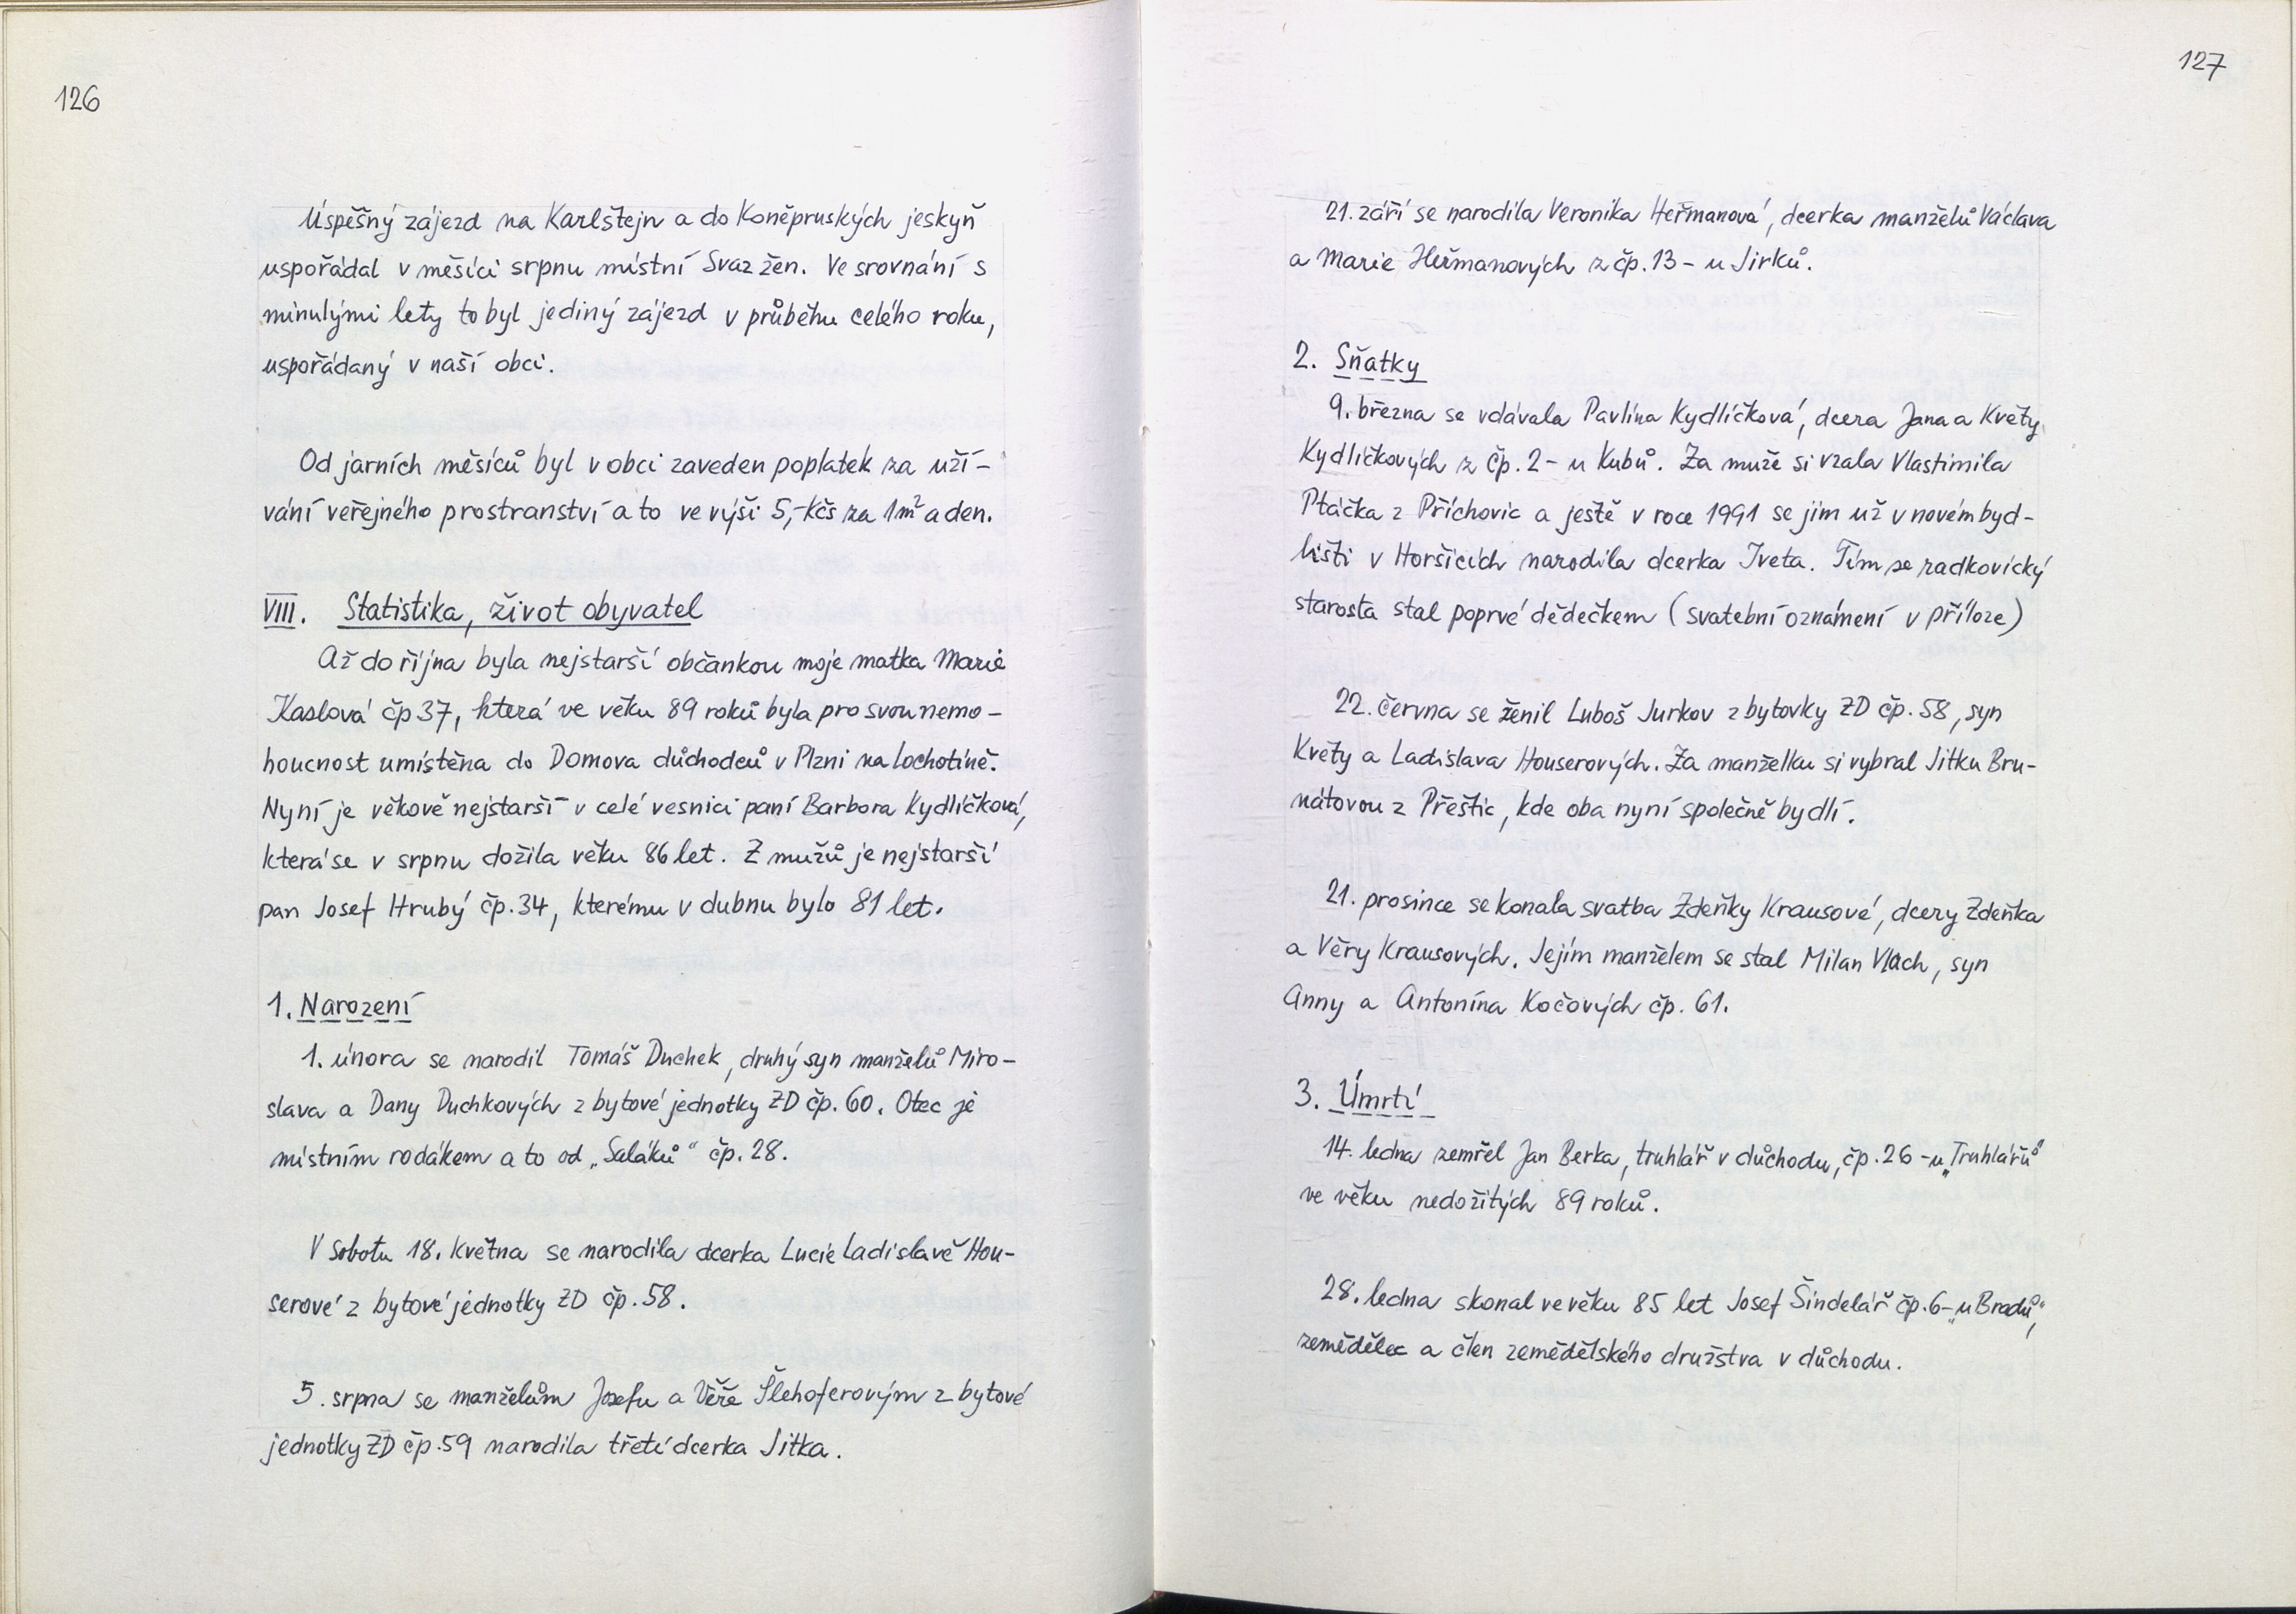 126
Úspěšný zájezd na Karlštejn a do Koněpruských jeskyň
uspořádal v měsíci srpnu místní Svaz žen. Ve srovnání s
minulými lety to byl jediný zájezd v průběhu celého roku,
uspořádaný v naší obci.
Od jarních měsíců byl v obci zaveden poplatek za uží-
vání veřejného prostranství a to ve výši 5,-Kčs za 1m² a den.
VIII. Statistika, život obyvatel
Až do října byla nejstarší občankou moje matka Marie
Kaslová čp 37, která ve věku 89 roků byla pro svou nemo-
houcnost umístěna do Domova důchodců v Plzni na Lochotíně.
Nyní je věkově nejstarší v celé vesnici paní Barbora Kydlíčková,
která se v srpnu dožila věku 86 let. Z mužů je nejstarší
pan Josef Hrubý čp. 34, kterému v dubnu bylo 81 let.
1. Narození
1. února se narodil Tomáš Duchek, druhý syn manželů Miro-
slava a Dany Duchkových z bytové jednotky ZD čp. 60. Otec je
místním rodákem a to od „Saláků“ čp. 28.
V sobotu 18. května se narodila dcerka Lucie Ladislavě Hou-
serové z bytové jednotky ZD čp. 58.
5. srpna se manželům Josefu a Věře Šlehoferovým z bytové
jednotky ZD čp. 59 narodila třetí dcerka Jitka.
127
21. září se narodila Veronika Heřmanová, dcerka manželů Václava
a Marie Heřmanových z čp. 13 - u Jirků.
2. Sňatky
9. března se vdávala Pavlína Kydlíčková, dcera Jana a Květy
Kydlíčkových z čp. 2 - u Kubů. Za muže si vzala Vlastimila
Ptáčka z Příchovic a ještě v roce 1991 se jim už v novém byd-
lišti v Horšicích narodila dcerka Iveta. Tím se radkovický
starosta stal poprvé dědečkem (svatební oznámení v příloze)
22. června se ženil Luboš Jurkov z bytovky ZD čp. 58, syn
Květy a Ladislava Houserových. Za manželku si vybral Jitku Bru-
nátovou z Přeštic, kde oba nyní společně bydlí.
21. prosince se konala svatba Zdeňky Krausové, dcery Zdeňka
a Věry Krausových. Jejím manželem se stal Milan Vlach, syn
Anny a Antonína Kočových čp. 61.
3. Úmrtí
14. ledna zemřel Jan Berka, truhlář v důchodu, čp. 26 - u „Truhlářů“
ve věku nedožitých 89 roků.
28. ledna skonal ve věku 85 let Josef Šindelář čp. 6 - „u Bradů“,
zemědělec a člen zemědělského družstva v důchodu.